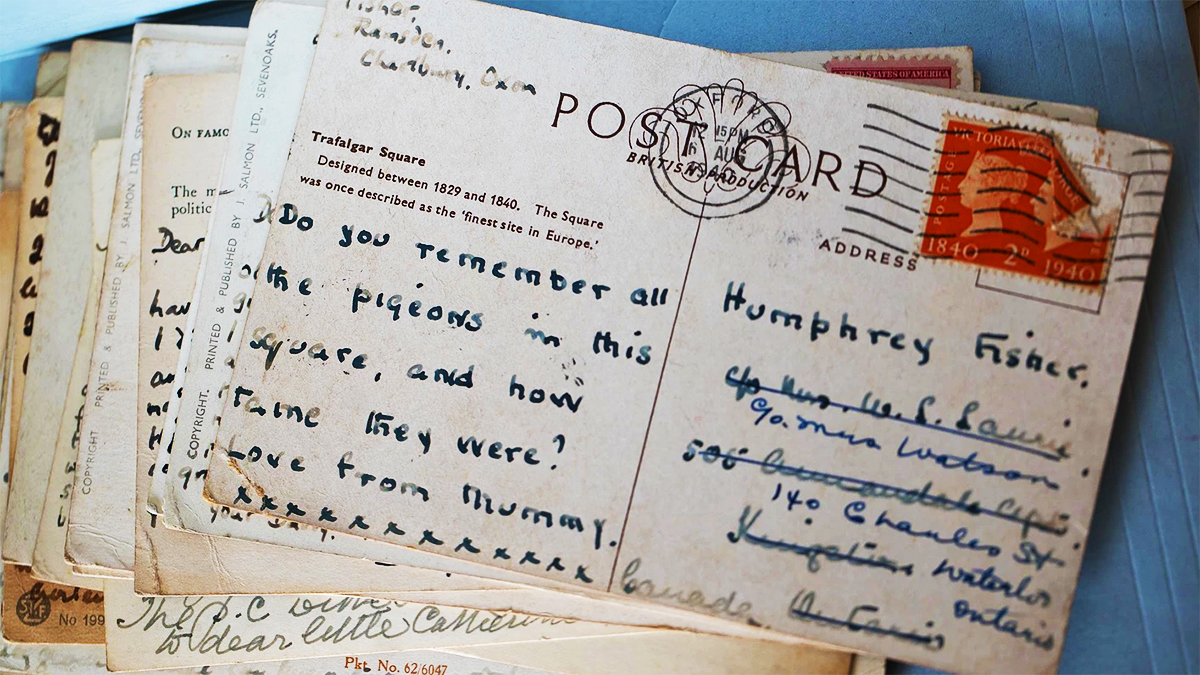 Fisher.
Ramsden.
Charlbury, Oxon
POST CARD
BRITISH PRODUCTION
OXFORD
15 PM
6 AUG
Trafalgar Square
Designed between 1829 and 1840. The Square
was once described as the 'finest site in Europe.'
Do you remember all
the pigeons in this
square, and how
tame they were?
Love from Mummy.
x x x x x x x x x x x
ADDRESS
Humphrey Fisher.
c/o Mrs. W. S. Laurie
c/o. Mrs Watson
505
140 Charles St.
Kingston
Waterloo
Ontario
Canada.
VICTORIA
POSTAGE
1840 2D 1940
UNITED STATES OF AMERICA
COPYRIGHT. PRINTED & PUBLISHED BY J. SALMON LTD., SEVENOAKS.
COPYRIGHT PRINTED & PUBLISHED BY J. SALMON
ON FAMO
The m
politic
Dear
hav
The D.C
to dear little Catherine
No 199
Pkt. No. 62/6047